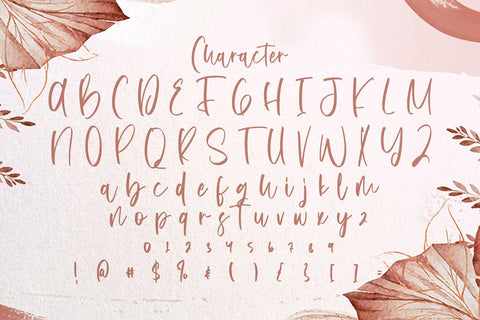 Character
A B C D E F G H I J K L M
N O P Q R S T U V W X Y Z
a b c d e f g h i j k l m
n o p q r s t u v w x y z
0 1 2 3 4 5 6 7 8 9
! @ # $ % & ( ) { } [ ] =